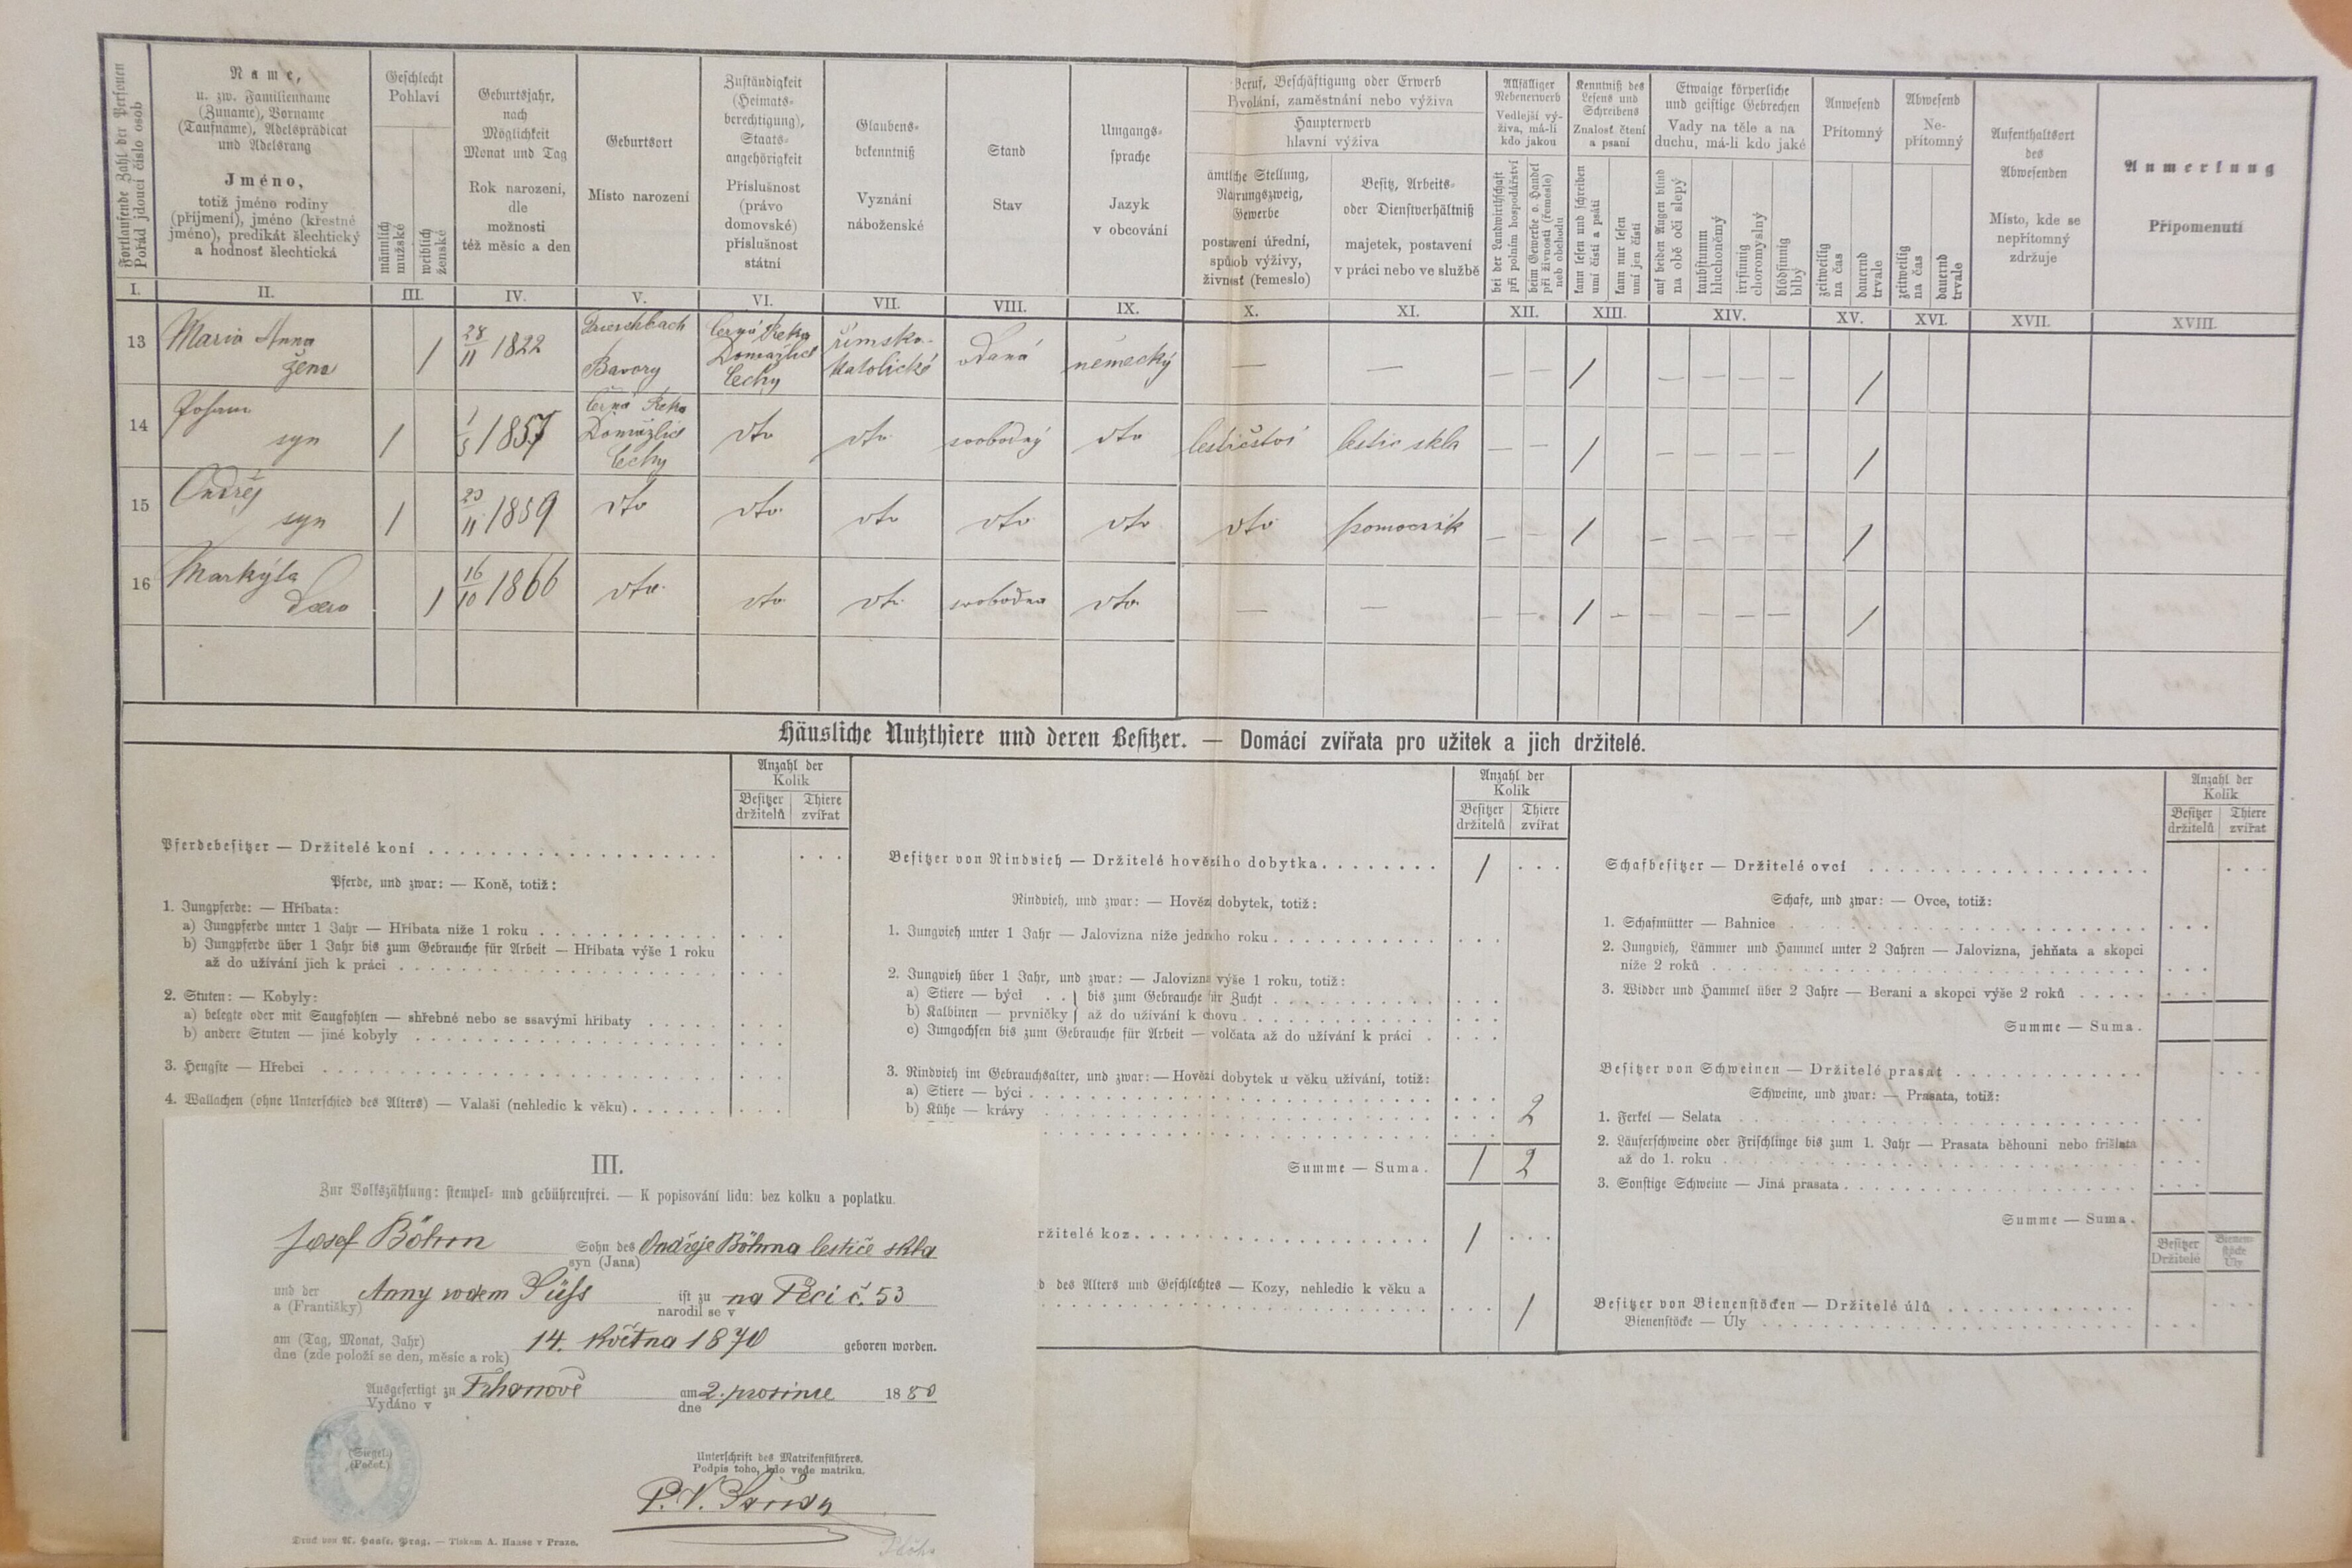 Fortlaufende Zahl der Personen
Pořád jdoucí číslo osob
Name,
u. zw. Familienname
(Zuname), Vorname
(Taufname), Adelsprädicat
und Adelsrang
Jméno,
totiž jméno rodiny
(příjmení), jméno (křestné
jméno), predikát šlechtický
a hodnosť šlechtická
Geschlecht
Pohlaví
männlich
mužské
weiblich
ženské
Geburtsjahr,
nach
Möglichkeit
Monat und Tag
Rok narození,
dle
možnosti
též měsíc a den
Geburtsort
Místo narození
Zuständigkeit
(Heimats-
berechtigung),
Staats-
angehörigkeit
Příslušnost
(právo
domovské)
příslušnost
státní
Glaubens-
bekenntniß
Vyznání
náboženské
Stand
Stav
Umgangs-
sprache
Jazyk
v obcování
Beruf, Beschäftigung oder Erwerb
Povolání, zaměstnání nebo výživa
Haupterwerb
hlavní výživa
ämtliche Stellung,
Nahrungszweig,
Gewerbe
postavení úřední,
spůsob výživy,
živnosť (řemeslo)
Besitz, Arbeits-
oder Dienstverhältniß
majetek, postavení
v práci nebo ve službě
Allfälliger
Nebenerwerb
Vedlejší vý-
živa, má-li
kdo jakou
bei der Landwirthschaft
při polním hospodářství
beim Gewerbe o. Handel
při živnosti (řemesle)
neb obchodu
Kenntniß des
Lesens und
Schreibens
Znalosť čtení
a psaní
kann lesen und schreiben
umí čísti a psáti
kann nur lesen
umí jen čísti
Etwaige körperliche
und geistige Gebrechen
Vady na těle a na
duchu, má-li kdo jaké
auf beiden Augen blind
na obě oči slepý
taubstumm
hluchoněmý
irrsinnig
choromyslný
blödsinnig
blbý
Anwesend
Přítomný
zeitweilig
na čas
dauernd
trvale
Abwesend
Ne-
přítomný
zeitweilig
na čas
dauernd
trvale
Aufenthaltsort
des
Abwesenden
Místo, kde se
nepřítomný
zdržuje
Anmerkung
Připomenutí
I. II. III. IV. V. VI. VII. VIII. IX. X. XI. XII. XIII. XIV. XV. XVI. XVII. XVIII.
13 Maria Anna žena / 28/11 1822 Bavory Černá Řeka Domažlice Čechy římsko-katolické vdaná německý — — — — / — — — — /
14 Johann syn / 1857 Černá Řeka Domažlice Čechy dto dto svobodný dto leštičství leštič skla — — / — — — — /
15 Ondřej syn / 23/11 1859 dto dto dto dto dto dto pomocník — — / — — — — /
16 Markýta dcera / 16/10 1866 dto dto dto svobodna dto — — — — / — — — — — /
Häusliche Nutzthiere und deren Besitzer. — Domácí zvířata pro užitek a jich držitelé.
Anzahl der
Kolik
Besitzer
držitelů
Thiere
zvířat
Pferdebesitzer — Držitelé koní
Pferde, und zwar: — Koně, totiž:
1. Jungpferde: — Hříbata:
a) Jungpferde unter 1 Jahr — Hříbata níže 1 roku
b) Jungpferde über 1 Jahr bis zum Gebrauche für Arbeit — Hříbata výše 1 roku
až do užívání jich k práci
2. Stuten: — Kobyly:
a) belegte oder mit Saugfohlen — shřebné nebo se ssavými hříbaty
b) andere Stuten — jiné kobyly
3. Hengste — Hřebci
4. Wallachen (ohne Unterschied des Alters) — Valaši (nehledíc k věku)
Anzahl der
Kolik
Besitzer
držitelů
Thiere
zvířat
Besitzer von Rindvieh — Držitelé hovězího dobytka 1
Rindvieh, und zwar: — Hovězí dobytek, totiž:
1. Jungvieh unter 1 Jahr — Jalovizna níže jednoho roku
2. Jungvieh über 1 Jahr, und zwar: — Jalovizna výše 1 roku, totiž:
a) Stiere — býci } bis zum Gebrauche für Zucht
b) Kalbinen — prvničky } až do užívání k chovu
c) Jungochsen bis zum Gebrauche für Arbeit — volčata až do užívání k práci
3. Rindvieh im Gebrauchsalter, und zwar: — Hovězí dobytek u věku užívání, totiž:
a) Stiere — býci
b) Kühe — krávy 2
Summe — Suma. 1 2
ržitelé koz 1
d des Alters und Geschlechtes — Kozy, nehledíc k věku a
1
Anzahl der
Kolik
Besitzer
držitelů
Thiere
zvířat
Schafbesitzer — Držitelé ovcí
Schafe, und zwar: — Ovce, totiž:
1. Schafmütter — Bahnice
2. Jungvieh, Lämmer und Hammel unter 2 Jahren — Jalovizna, jehňata a skopci
níže 2 roků
3. Widder und Hammel über 2 Jahre — Berani a skopci výše 2 roků
Summe — Suma.
Besitzer von Schweinen — Držitelé prasat
Schweine, und zwar: — Prasata, totiž:
1. Ferkel — Selata
2. Läuferschweine oder Frischlinge bis zum 1. Jahr — Prasata běhouni nebo frišlata
až do 1. roku
3. Sonstige Schweine — Jiná prasata
Summe — Suma.
Besitzer
Držitelé
Bienen-
stöcke
Úly
Besitzer von Bienenstöcken — Držitelé úlů
Bienenstöcke — Úly
III.
Zur Volkszählung: stempel- und gebührenfrei. — K popisování lidu: bez kolku a poplatku.
Josef Böhm Sohn des Ondřeje Böhma leštiče skla
syn (Jana)
und der Anny rodem Süß ist zu na Peci č. 53
a (Františky) narodil se v
am (Tag, Monat, Jahr) 14. Května 1870 geboren worden.
dne (zde položí se den, měsíc a rok)
Ausgefertigt zu Trhanově am 2. prosince 1880
Vydáno v dne
(Siegel.)
(Pečeť.)
Unterschrift des Matrikenführers.
Podpis toho, kdo vede matriku.
P. V.
Druck von A. Haase, Prag. — Tiskem A. Haase v Praze.